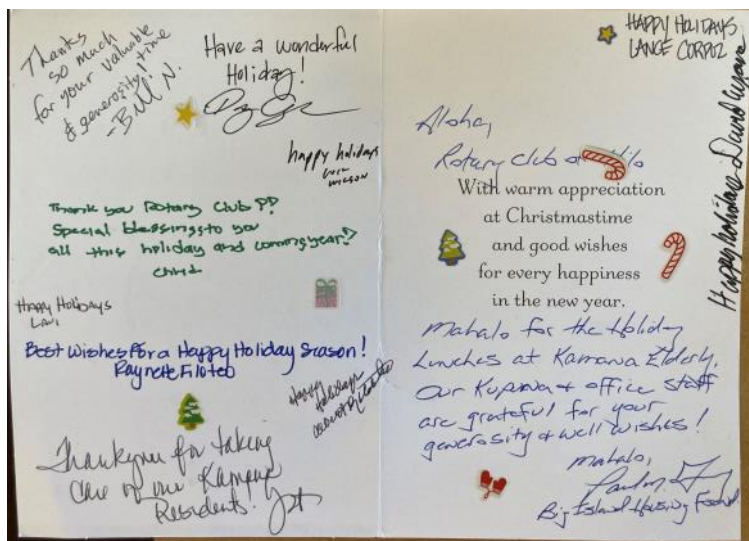 Thanks
so much
for your valuable
& generosity! time
-Bill N.
Have a wonderful
Holiday!
happy holidays
WILSON
Thank you Rotary Club !!
Special blessings to you
all this holiday and coming year!
Chris
Happy Holidays
Lani
Best Wishes For a Happy Holiday Season!
Raynette Filoteo
Happy
Holidays
Thankyou for taking
care of our
Residents!
HAPPY HOLIDAYS
LANCE CORPUZ
Happy holidays David
Aloha,
Rotary Club
With warm appreciation
at Christmastime
and good wishes
for every happiness
in the new year.
Mahalo for the Holiday
Lunches at Kamana Elderly.
Our Kupuna & office staff
are grateful for your
generosity & well wishes!
Mahalo,
Big Island Housing